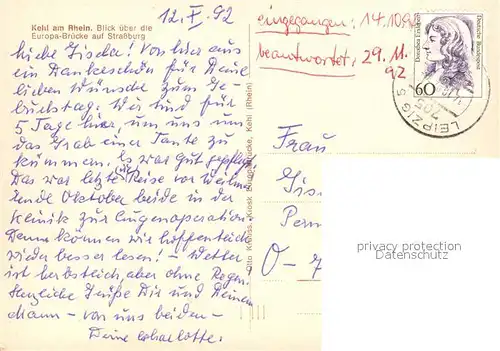 Kehl am Rhein. Blick über die
Europa-Brücke auf Straßburg
12. X. 92
eingegangen: 14.10.92
beantwortet: 29.11.
92
Deutsche Bundespost
Dorothea Erxleben
60
LEIPZIG 5
7050
Liebe Gisela! Von hier aus
ein Dankeschön für Deine
lieben Wünsche zum Ge-
burtstag. Wir sind für
5 Tage hier, um uns um
das Grab einer Tante zu
kümmern. Es war gut gepflegt.
Das war letzte Reise vor
Ende Oktober beide in der
Klinik zur Augenoperation.
Dann können wir hoffentlich
wieder besser lesen! – Wetter
ist herbstlich, aber ohne Regen.
Herzliche Grüße Dir und Deinem
Mann – von uns beiden –
Deine Charlotte.
Kehl (Rhein)
Frau
Gis
O - 7
privacy protection
Datenschutz